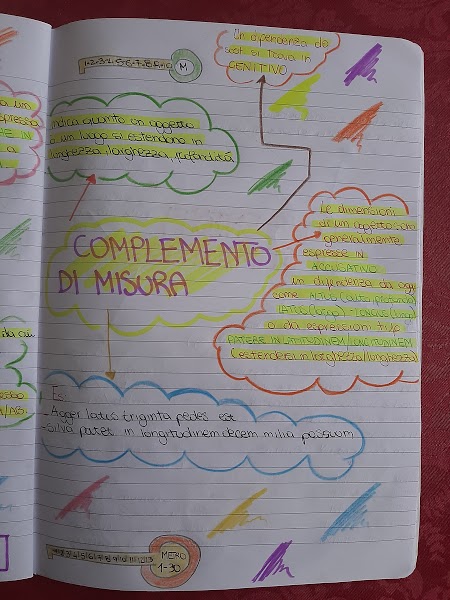 Un dipendenza da
sost. si trova in
GENITIVO
1-2-3-4-5-6-7-8-9-10 M
indica quanto un oggetto
o un luogo si estendono in
lunghezza, larghezza, profondità
COMPLEMENTO
DI MISURA
Le dimensioni
di un oggetto sono
generalmente
espresse in
ACCUSATIVO
in dipendenza da agg.
come ALTUS (alto, profondo)
LATUS (largo)
o da espressioni tipo
PATERE IN LATITUDINEM/LONGITUDINEM
(estendersi in larghezza/lunghezza)
Es:
-Agger latus triginta pedes est
-Silva patet in longitudinem decem milia passuum
MERO
1-30